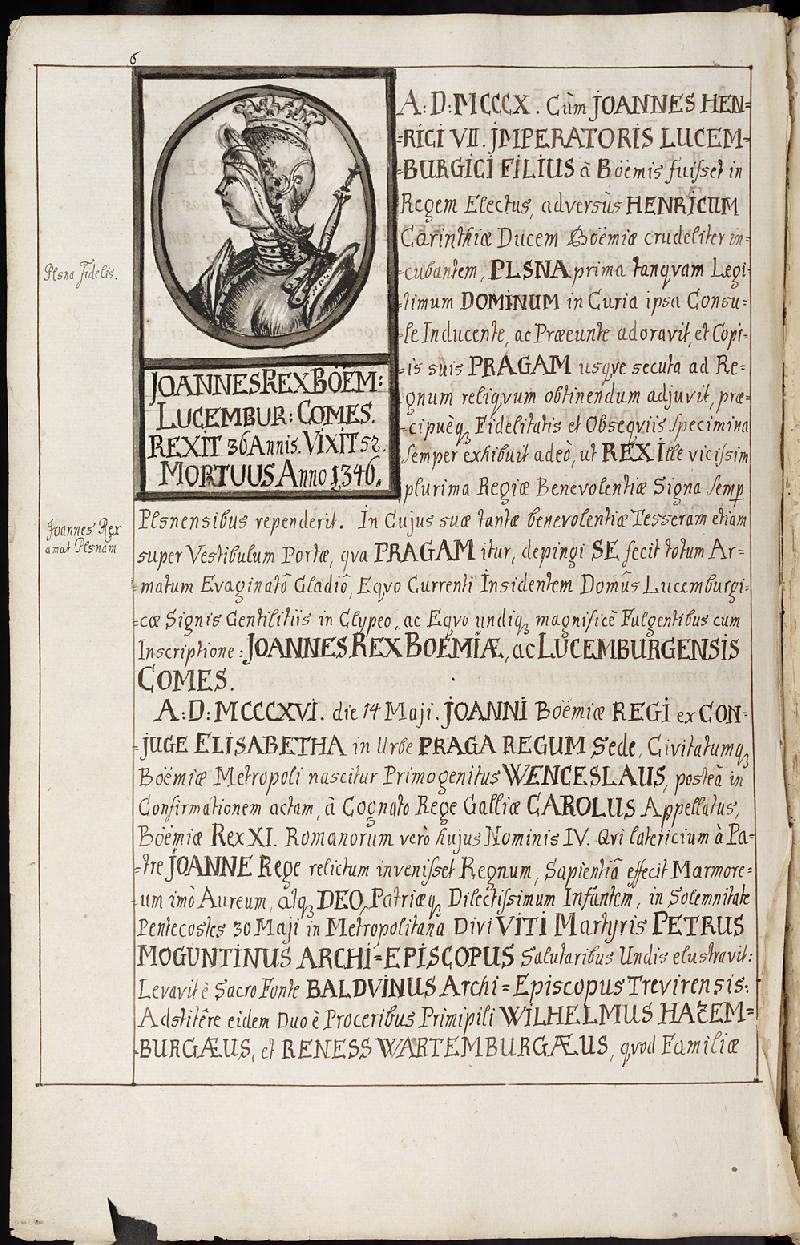 6
A: D: MCCCX. Cùm JOANNES HEN=
=RICI VII. JMPERATORIS LUCEM=
=BURGICI FILIUS à Böemis fuisset in
Regem Electus, adversùs HENRICUM
Carinthiæ Ducem Böemiæ crudeliter in=
=cubantem, PLSNA prima tanqvam Legi=
=timum DOMINUM in Curia ipsa Consu=
=le Inducente, ac Præeunte adoravit, et Copi=
=is suis PRAGAM usqve secuta ad Re=
=gnum reliqvum obtinendum adjuvit, præ=
=cipuèq, Fidelitatis et Obseqviis specimina
semper exhibuit adeò, ut REX Ille vicissim
plurima Regiæ Benevolentiæ Signa semp
Plsna fidelis.
JOANNES REX BÖEM:
LUCEMBUR: COMES.
REXIT 36 Annis. VIXIT 52.
MORTUUS Anno 1346.
Joannes Rex
amat Plsnam
Plsnensibus rependerit. In Cujus suæ tantæ benevolentiæ Tesseram etiam
super Vestibulum Portæ, qva PRAGAM itur, depingi SE fecit totum Ar=
=matum Evaginatô Gladiô, Eqvo Currenti Insidentem Domûs Lucemburgi=
=cæ Signis Gentilitiis in Clypeo, ac Eqvo undiq, magnificè Fulgentibus cum
Inscriptione: JOANNES REX BOËMIÆ, ac LUCEMBURGENSIS
COMES.
A: D: MCCCXVI. die 14 Maji. JOANNI Böemiæ REGI ex CON=
=JUGE ELISABETHA in Urbe PRAGA REGUM Sede, Civitatumq,
Böemiæ Metropoli nascitur Primogenitus WENCESLAUS, posteà in
Confirmationem actam, à Cognato Rege Galliæ CAROLUS Appellatus,
Böemiæ Rex XI. Romanorum verò hujus Nominis IV. Qvi latericium à Pa=
=tre JOANNE Rege relictum invenisset Regnum, Sapientiâ effecit Marmore=
um imò Aureum, atq, DEO, Patriæq, Dilectissimum Infantem, in Solemnitate
Pentecostes 30 Maji in Metropolitana Divi VITI Martyris PETRUS
MOGUNTINUS ARCHI=EPISCOPUS Salutaribus Undis elustravit:
Levavit è Sacro Fonte BALDVINUS Archi=Episcopus Trevirensis.
Adstitêre eidem Duo è Proceribus Primipili WILHELMUS HAZEM=
=BURGÆUS, et RENESS WARTEMBURGÆUS, qvod Familiæ